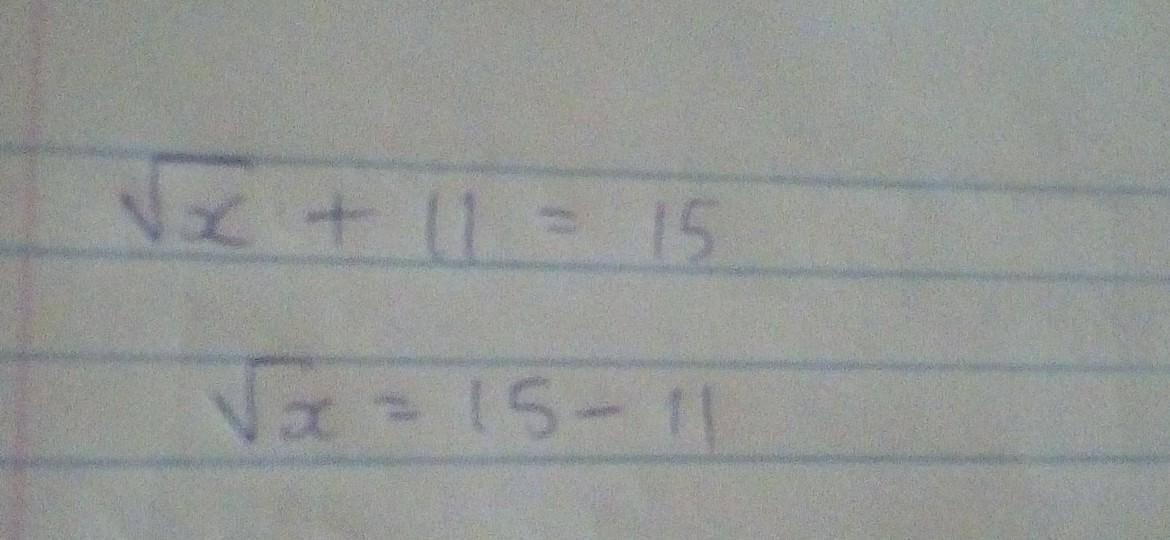 √x + 11 = 15
√x = 15 - 11